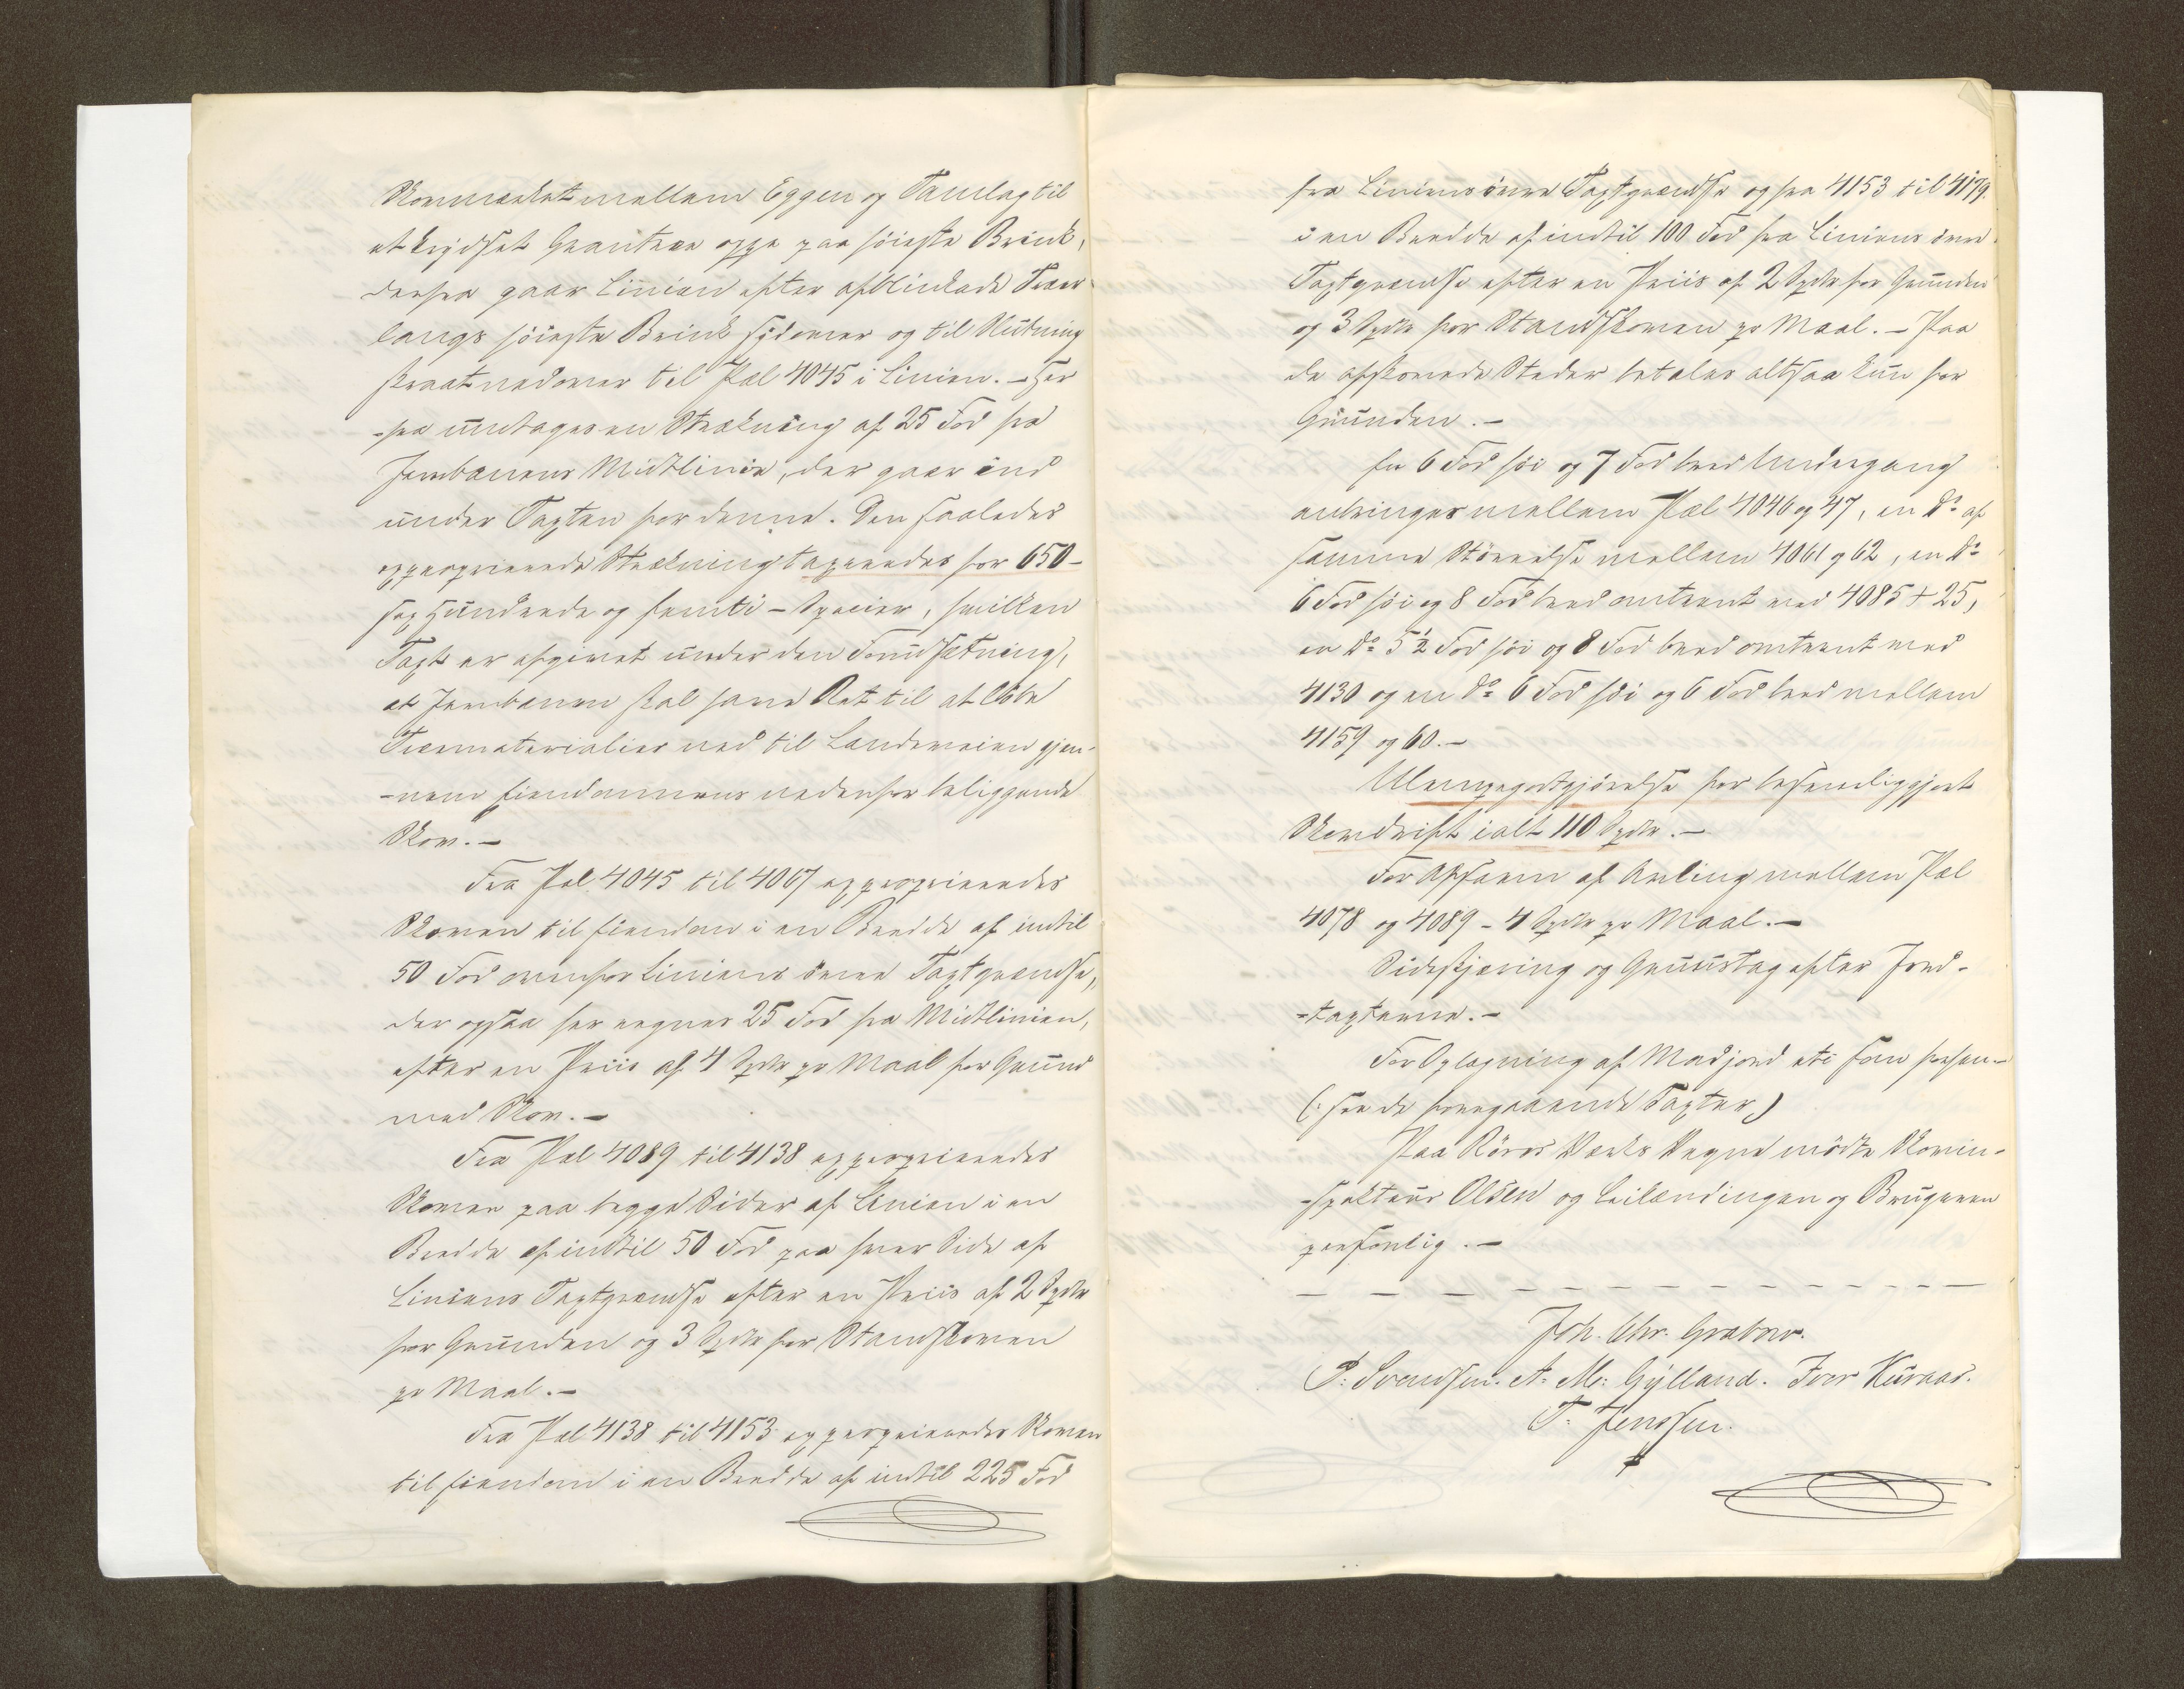 Skovmærket mellem Eggen og Tamlag til
et krydset Grantræe oppe paa høieste Brink,
derfra gaar Linien efter afblinkede Træer
langs høieste Brink sydover og til Slutning
skraat nedover til Pæl 4045 i Linien. – Her
-fra undtages en Strækning af 25 Fod fra
Jernbanens Midtlinie, der gaar ind
under Taxten for denne. Den saaledes
expropriereda Strækning taxeredes for 650 –
sex Hundrede og femti – Species, hvilken
Taxt er afgivet under den Forudsætning,
at Jernbanen skal have Ret til at løbe
Træmaterialier ned til Landeveien gjen-
-nem Eiendommens nedenfor beliggende
Skov. –
Fra Pæl 4045 til 4067 exproprieredes
Skoven til Eiendom i en Bredde af indtil
50 Fod ovenfor Liniens øvre Taxtgrændse,
der ogsaa her regnes 25 Fod fra Midtlinien,
efter en Priis af 4 Spdlr pr Maal for Grund
med Skov. –
Fra Pæl 4089 til 4138 exproprieredes
Skoven paa begge Sider af Linien i en
Bredde af indtil 50 Fod paa hver Side af
Liniens Taxtgrændse efter en Priis af 2 Spdlr
for Grunden og 3 Spdlr for Standskoven
pr Maal. –
Fra Pæl 4138 til 4153 exproprieredes Skoven
til Eiendom i en Bredde af indtil 225 Fod
fra Liniens øvre Taxtgrændse og fra 4153 til 4179.
i en Bredde af indtil 100 Fod fra Liniens øvre
Taxtgrændse efter en Priis af 2 Spdlr for Grunden
og 3 Spdlr for Standskoven pr Maal. – Paa
de afskovede Steder betales altsaa kun for
Grunden. –
En 6 Fod høi og 7 Fod bred Undergang
anbringes mellem Pæl 4046 og 47, en do af
samme Størrelse mellem 4061 og 62, en do
6 Fod høi og 8 Fod bred omtrent ved 4085 + 25,
en do 5 1/2 Fod høi og 8 Fod bred omtrent ved
4130 og en do 6 Fod høi og 6 Fod bred mellem
4159 og 60. –
Ulempegodtgjørelse for besværliggjort
Skovdrift ialt 110 Spdlr. –
For Afsavn af Avling mellem Pæl
4078 og 4089 – 4 Spdlr pr Maal. –
Sideskjæring og Gruustag efter Jord-
-taxterne. –
For Oplægning af Madjord etc som forhen-
(: see de foregaaende Taxter)
Paa Röros Værks Vegne mødte Skovin-
-spekteur Olsen og Leilændingen og Brugeren
personlig. –
Joh. Chr. Grabow.
P: Svendsen. A: M: Gylland. Iver Kuraas.
T. Jenssen.